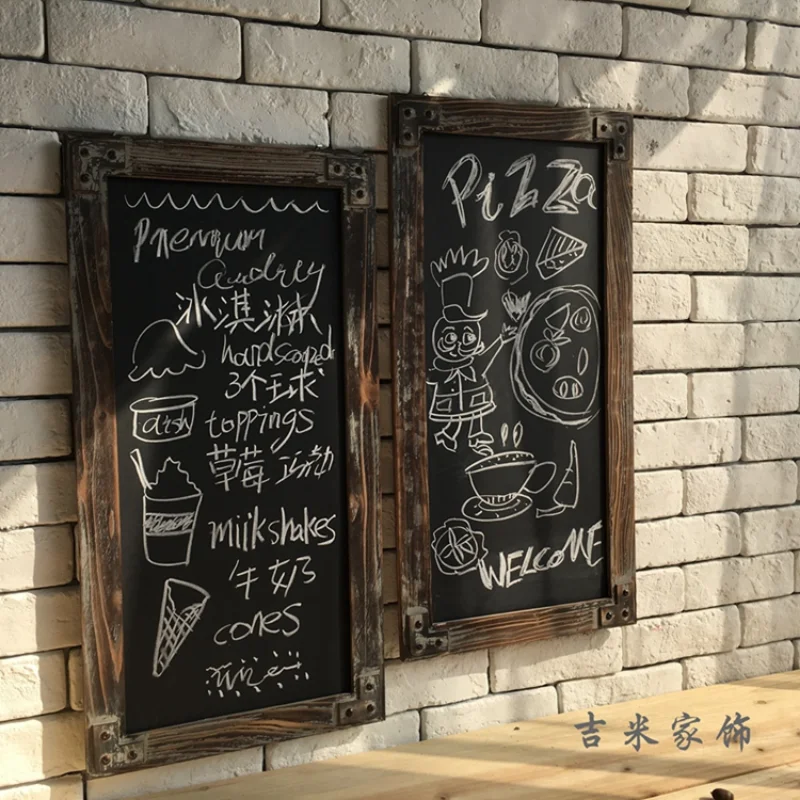 Premium
Audrey
冰淇淋
handscooped
3个球
toppings
草莓
miikshakes
牛奶
cones
Pizza
WELCOME
吉米家饰